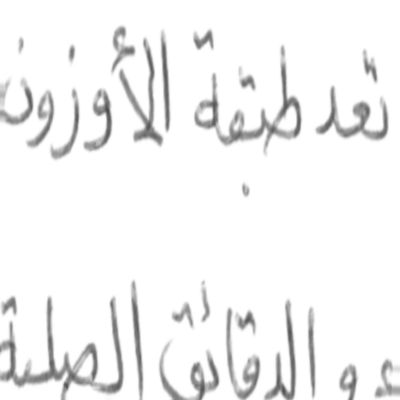 تعد طبقة الأوزون
ء و الدقائق الصلبة